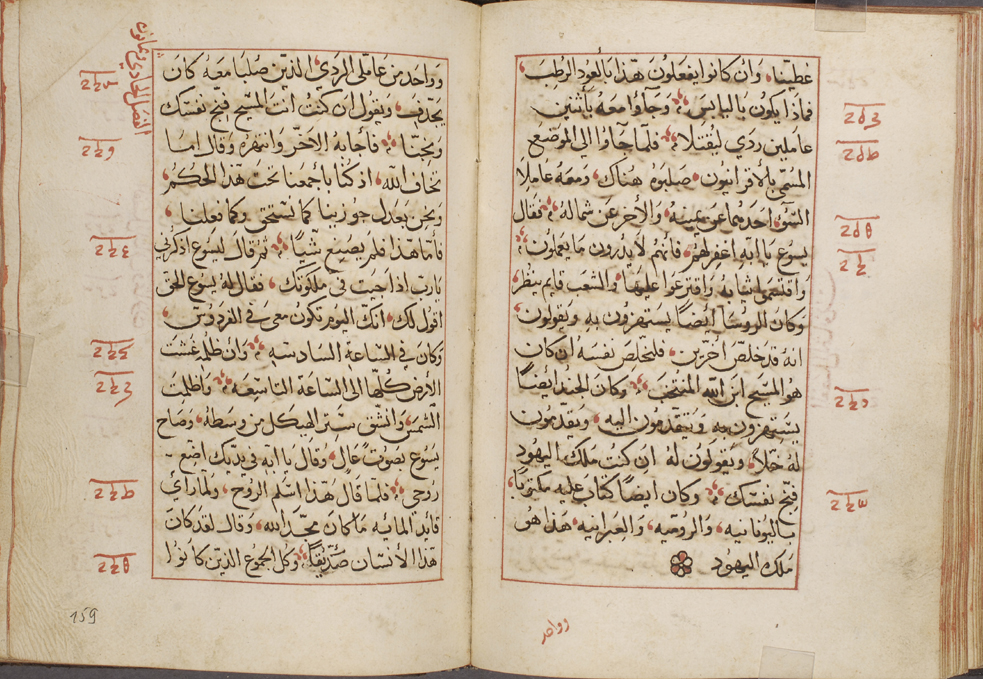 عطينا، وان كانوا يفعلون هذا بالعود الرطب،
فماذا يكون باليابس، وجآوا معه باثنين
عاملين ردي ليقتلا، فلما جآوا الي الموضع
المسمي بالأقرانيون صلبوه هناك، ومعه عاملا
السؤ احدهما عن يمينه والآخر عن شماله، فقال
يسوع يا ابه اغفر لهم فانهم لا يدرون ما يعملون،
واقتسموا ثيابه واقترعوا عليها والشعب قايم ينظر
وكان الروسا ايضًا يستهزون به ويقولون
انه قد خلص آخرين، فليخلص نفسه ان كان
هو المسيح ابن الله المنتخب، وكان الجند ايضًا
يستهزون به ويتقدمون اليه، ويقدمون
له خلاً، ويقولون له ان كنت ملك اليهود
فنج نفسك، وكان ايضًا كتاب عليه مكتوبًا
باليونانيه، والروميه، والعبرانيه، هذا هو
ملك اليهود
وواحد
الفصل الحادي
وواحد من عاملي الردي الذين صلبا معه كان
يجدف، ويقول ان كنت انت المسيح فنج نفسك
ونجنا، فأجابه الآخر وانتهره وقال اما
تخاف الله، اذ كنا بأجمعنا تحت هذا الحكم،
ونحن بعدل جوزينا كما نستحق وكما فعلنا،
فاما هذا فلم يصنع شيًا، ثم قال ليسوع اذكرني
يارب اذا جيت في ملكوتك، فقال له يسوع الحق
اقول لك، انك اليوم تكون معي في الفردوس،
وكان في الساعة السادسه، وان ظلمه غشت
الأرض كلها الي الساعة التاسعه، واظلمت
الشمس، وانشق ستر الهيكل من وسطه، وصاح
يسوع بصوت عال، وقال يا ابه في يديك اضع
روحي، فلما قال هذا اسلم الروح، ولما رأي
قايد المائيه ما كان مجد الله، وقال لقد كان
هذا الأنسان صديقًا، وكل الجموع الذين كانوا
159